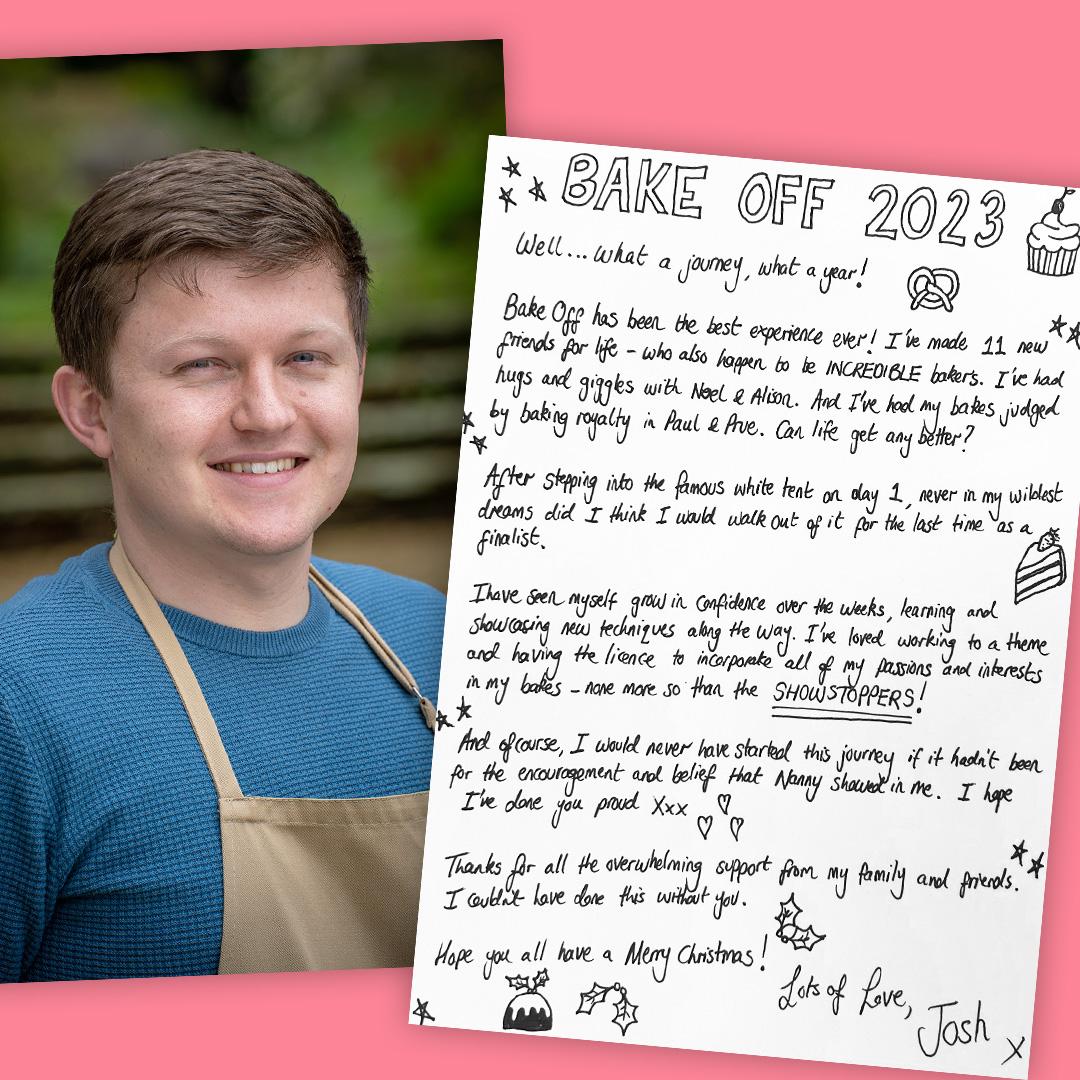 BAKE OFF 2023
Well... what a journey, what a year!
Bake Off has been the best experience ever! I've made 11 new
friends for life - who also happen to be INCREDIBLE bakers. I've had
hugs and giggles with Noel & Alison. And I've had my bakes judged
by baking royalty in Paul & Prue. Can life get any better?
After stepping into the famous white tent on day 1, never in my wildest
dreams did I think I would walk out of it for the last time as a
finalist.
I have seen myself grow in confidence over the weeks, learning and
showcasing new techniques along the way. I've loved working to a theme
and having the licence to incorporate all of my passions and interests
in my bakes - none more so than the SHOWSTOPPERS!
And ofcourse, I would never have started this journey if it hadn't been
for the encouragement and belief that Nanny showed in me. I hope
I've done you proud Xxx
Thanks for all the overwhelming support from my family and friends.
I couldn't have done this without you.
Hope you all have a Merry Christmas!
Lots of Love,
Josh X